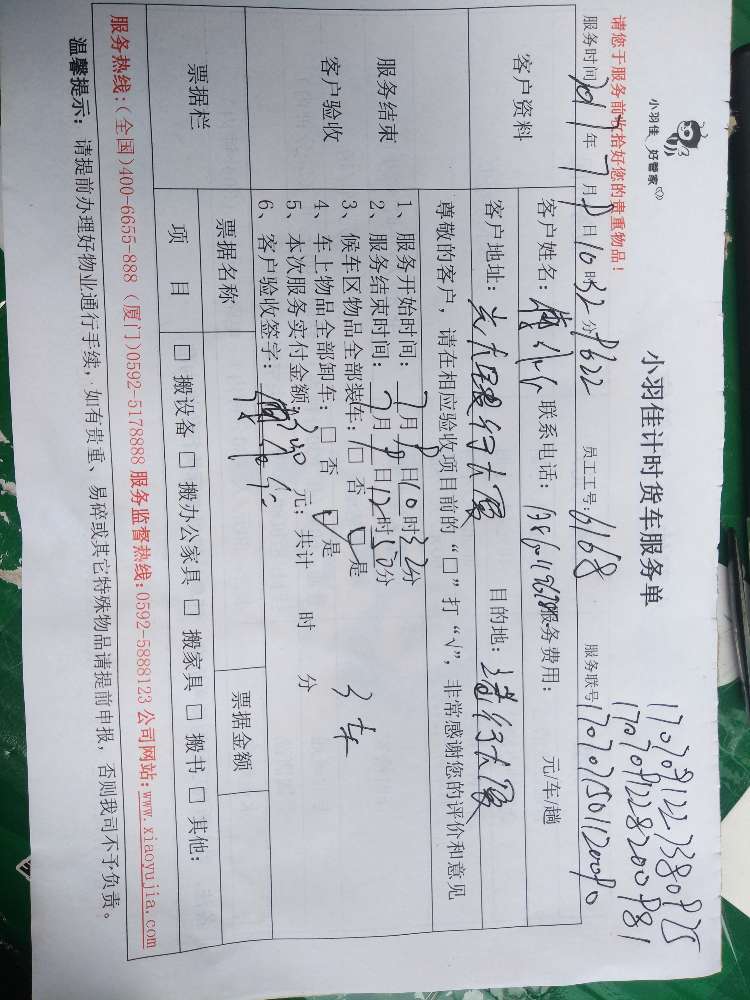 小羽佳 好管家
小羽佳计时货车服务单
请您于服务前收拾好您的贵重物品!
服务时间 2017年7月 日10时32分 员工工号: 6168 服务联号
客户资料
客户姓名: 联系电话: 服务费用: 元/车/趟
客户地址: 光大银行大厦 目的地: 建行大厦
尊敬的客户,请在相应验收项目前的“□”打“√”,非常感谢您的评价和意见
服务结束
客户验收
1、服务开始时间: 7月 日10时32分
2、服务结束时间: 7月 日12时 分
3、候车区物品全部装车: □ 否 □ 是
4、车上物品全部卸车: □ 否 □ 是
5、本次服务实付金额: 元; 共计 时 分
6、客户验收签字:
3车
票据栏
票据名称 票据金额
项 目 □ 搬设备 □ 搬办公家具 □ 搬家具 □ 搬书 □ 其他:
服务热线:(全国)400-6655-888 (厦门)0592-5178888 服务监督热线:0592-5888123 公司网站:www.xiaoyujia.com
温馨提示: 请提前办理好物业通行手续,如有贵重、易碎或其它特殊物品请提前申报,否则我司不予负责。